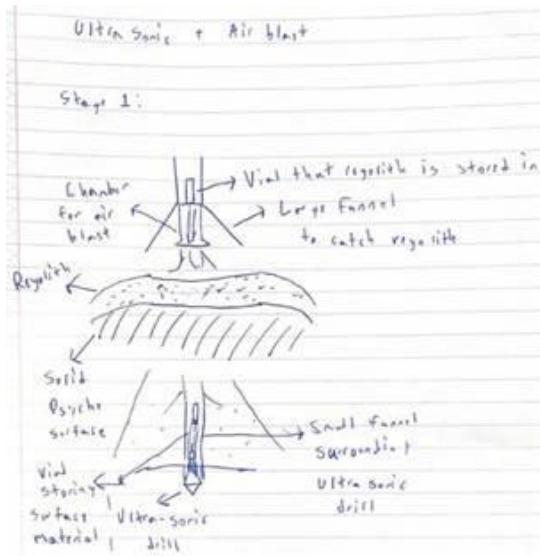 Ultra Sonic + Air blast
Stage 1:
Vial that regolith is stored in
Chamber
for air
blast
Large Funnel
to catch regolith
Regolith
Solid
Psyche
surface
Small funnel
surrounding
Ultra sonic
drill
Vial
storing
surface
material
Ultra-sonic
drill